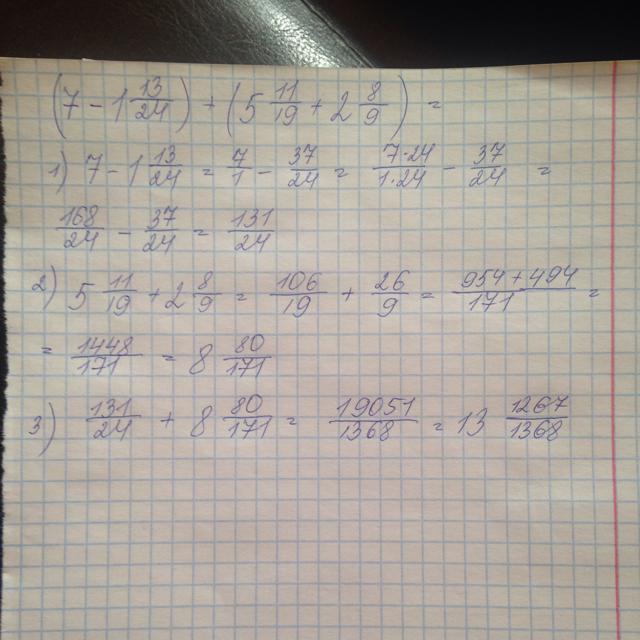 (7 - 1 13/24) + (5 11/19 + 2 8/9) =
1) 7 - 1 13/24 = 7/1 - 37/24 = 7·24/1·24 - 37/24 =
168/24 - 37/24 = 131/24
2) 5 11/19 + 2 8/9 = 106/19 + 26/9 = 954 + 494/171 =
= 1448/171 = 8 80/171
3) 131/24 + 8 80/171 = 19051/1368 = 13 1267/1368